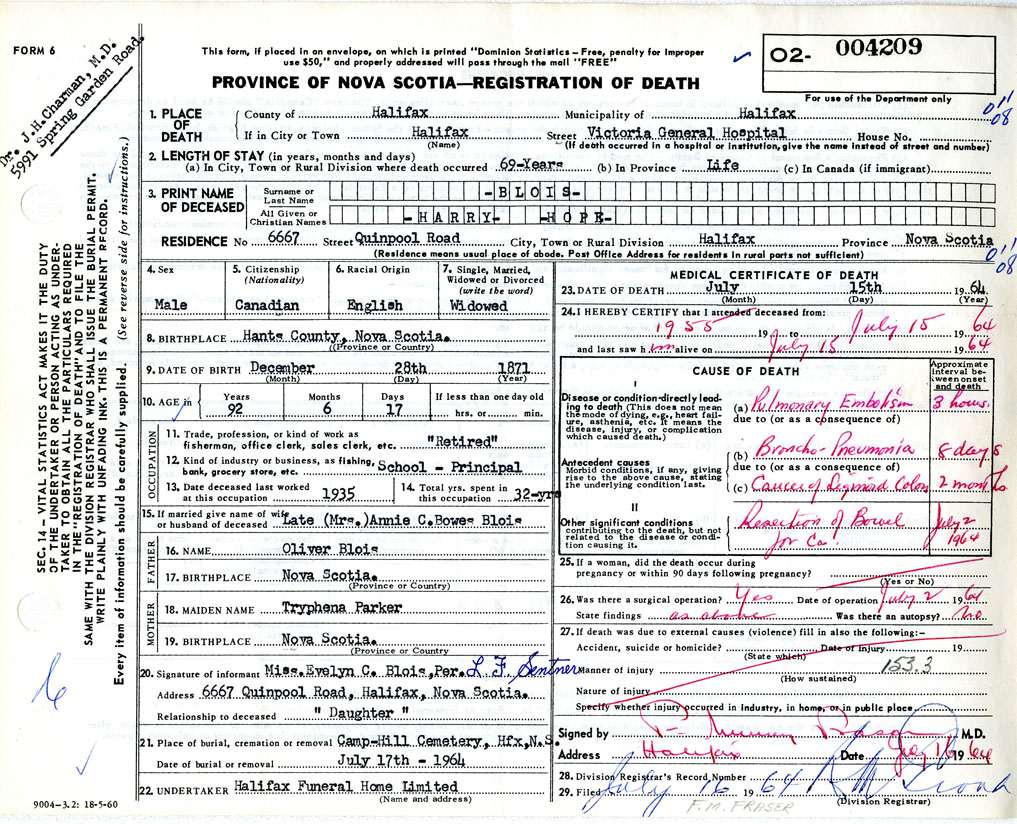 FORM 6
Dr. J.H.Charman, M.D.
5991 Spring Garden Road.
This form, if placed in an envelope, on which is printed "Dominion Statistics – Free, penalty for improper
use $50," and properly addressed will pass through the mail "FREE"
O2- 004209
PROVINCE OF NOVA SCOTIA—REGISTRATION OF DEATH
For use of the Department only
011
08
1. PLACE OF DEATH
County of Halifax Municipality of Halifax
If in City or Town Halifax Street Victoria General Hospital House No.
(Name) (If death occurred in a hospital or institution, give the name instead of street and number)
2. LENGTH OF STAY (in years, months and days)
(a) In City, Town or Rural Division where death occurred 69-Years (b) In Province Life (c) In Canada (if immigrant)
3. PRINT NAME OF DECEASED
Surname or Last Name -BLOIS-
All Given or Christian Names -HARRY- -HOPE-
RESIDENCE No 6667 Street Quinpool Road City, Town or Rural Division Halifax Province Nova Scotia
(Residence means usual place of abode. Post Office Address for residents in rural parts not sufficient)
011
08
SEC. 14 – VITAL STATISTICS ACT MAKES IT THE DUTY
OF THE UNDERTAKER OR PERSON ACTING AS UNDER-
TAKER TO OBTAIN ALL THE PARTICULARS REQUIRED
IN THE "REGISTRATION OF DEATH" AND TO FILE THE
SAME WITH THE DIVISION REGISTRAR WHO SHALL ISSUE THE BURIAL PERMIT.
WRITE PLAINLY WITH UNFADING INK. THIS IS A PERMANENT RECORD.
Every item of information should be carefully supplied. (See reverse side for instructions.)
4. Sex
Male
5. Citizenship
(Nationality)
Canadian
6. Racial Origin
English
7. Single, Married,
Widowed or Divorced
(write the word)
Widowed
8. BIRTHPLACE Hants County, Nova Scotia.
(Province or Country)
9. DATE OF BIRTH December 28th 1871
(Month) (Day) (Year)
10. AGE in
Years Months Days If less than one day old
92 6 17 hrs. or min.
OCCUPATION
11. Trade, profession, or kind of work as
fisherman, office clerk, sales clerk, etc. "Retired"
12. Kind of industry or business, as fishing,
bank, grocery store, etc. School - Principal
13. Date deceased last worked
at this occupation 1935
14. Total yrs. spent in
this occupation 32-yrs
15. If married give name of wife
or husband of deceased Late (Mrs.)Annie C.Bowes Blois
FATHER
16. NAME Oliver Blois
17. BIRTHPLACE Nova Scotia.
(Province or Country)
MOTHER
18. MAIDEN NAME Tryphena Parker
19. BIRTHPLACE Nova Scotia.
(Province or Country
20. Signature of informant Miss.Evelyn C. Blois,Per. L F Sentner
Address 6667 Quinpool Road, Halifax, Nova Scotia.
Relationship to deceased " Daughter "
21. Place of burial, cremation or removal Camp-Hill Cemetery, Hfx,N.S.
Date of burial or removal July 17th - 1964
22. UNDERTAKER Halifax Funeral Home Limited
(Name and address)
9004-3.2: 18-5-60
MEDICAL CERTIFICATE OF DEATH
23. DATE OF DEATH July 15th 1964
(Month) (Day) (Year)
24. I HEREBY CERTIFY that I attended deceased from:
1955 19 to July 15 1964
and last saw him alive on July 15 1964
CAUSE OF DEATH
Approximate
interval be-
tween onset
and death
I
Disease or condition directly lead-
ing to death (This does not mean
the mode of dying, e.g., heart fail-
ure, asthenia, etc. It means the
disease, injury, or complication
which caused death.)
(a) Pulmonary Embolism 3 hours.
due to (or as a consequence of)
(b) Broncho-Pneumonia 8 days
Antecedent causes
Morbid conditions, if any, giving
rise to the above cause, stating
the underlying condition last.
due to (or as a consequence of)
(c) Cancer of Sigmoid Colon 2 months
II
Other significant conditions
contributing to the death, but not
related to the disease or condi-
tion causing it.
Resection of Bowel
for Ca.
July 2
1964
25. If a woman, did the death occur during
pregnancy or within 90 days following pregnancy?
(Yes or No)
26. Was there a surgical operation? Yes Date of operation July 2 1964
State findings as above Was there an autopsy? No
27. If death was due to external causes (violence) fill in also the following:–
Accident, suicide or homicide? Date of injury 19
(State which)
Manner of injury 153.3
(How sustained)
Nature of injury
Specify whether injury occurred in industry, in home, or in public place
Signed by M.D.
Address Halifax Date July 16 1964
28. Division Registrar's Record Number
29. Filed July 16 1964
F.M. FRASER
(Division Registrar)